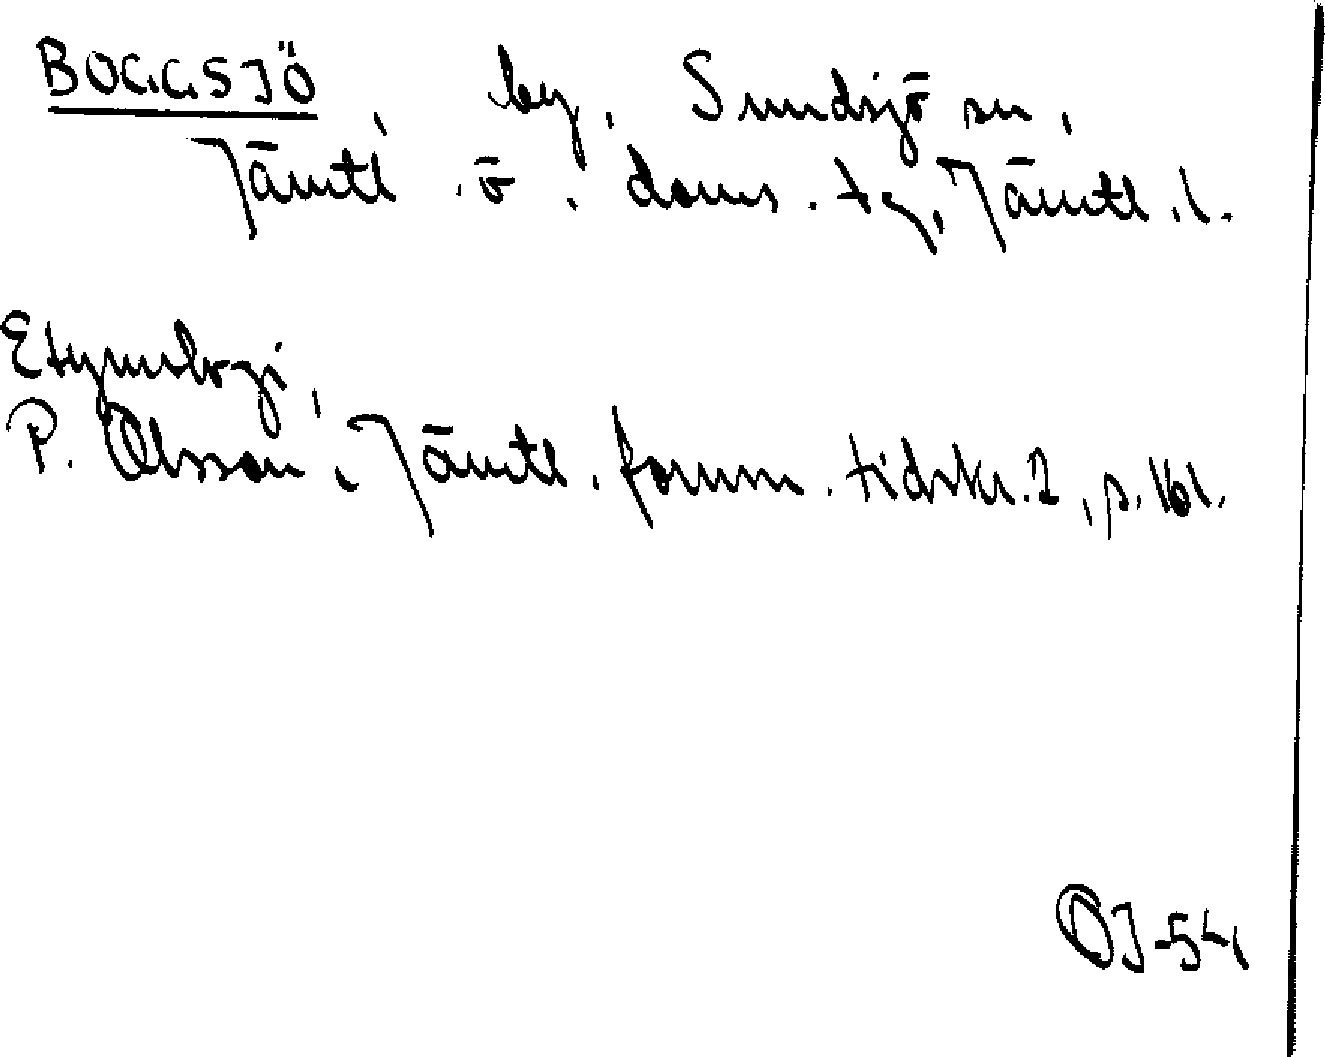 BOGGSJÖ by, Sundsjö sn,
Jämtl. ö. doms. tg, Jämtl. l.
Etymologi,
P. Olsson, Jämtl. fornm. tidskr. 2, p. 161.
OJ-54